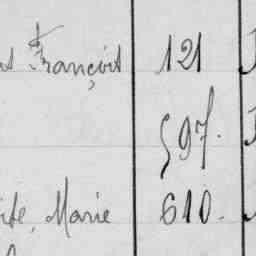 François 121
597.
Marie 610.